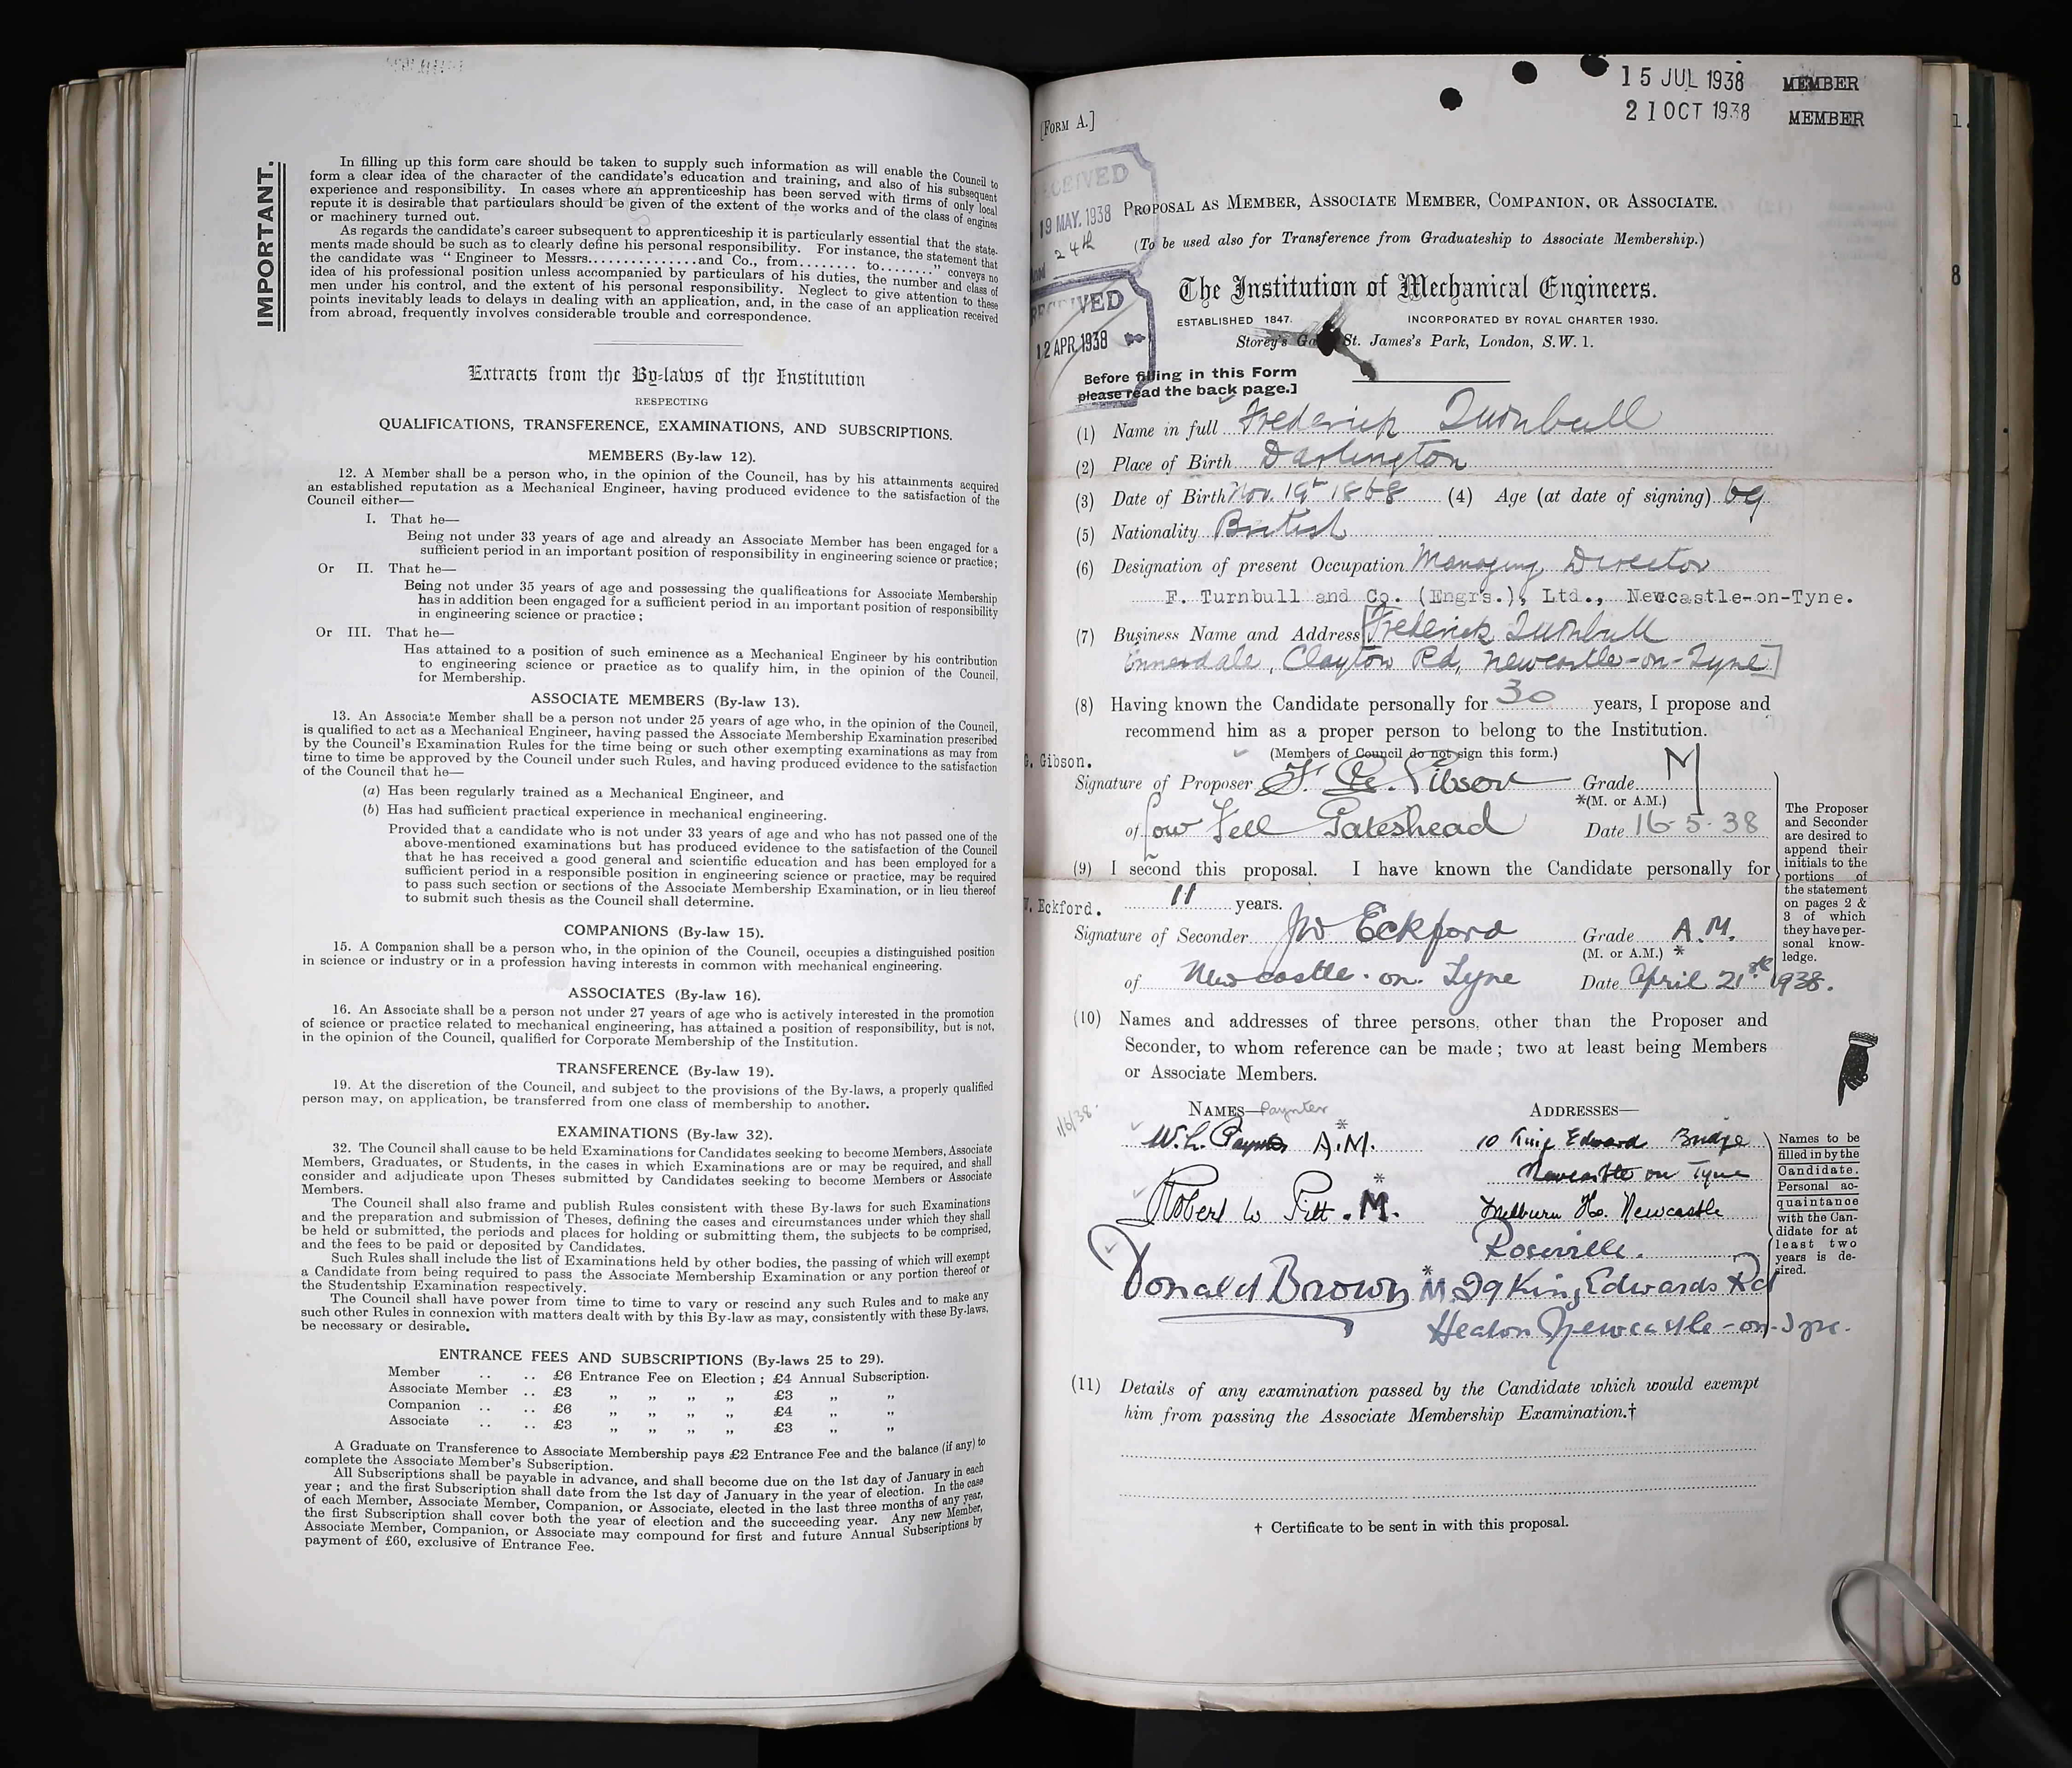 IMPORTANT.
In filling up this form care should be taken to supply such information as will enable the Council to
form a clear idea of the character of the candidate's education and training, and also of his subsequent
experience and responsibility. In cases where an apprenticeship has been served with firms of only local
repute it is desirable that particulars should be given of the extent of the works and of the class of engines
or machinery turned out.
As regards the candidate's career subsequent to apprenticeship it is particularly essential that the state-
ments made should be such as to clearly define his personal responsibility. For instance, the statement that
the candidate was " Engineer to Messrs...............and Co., from........ to........" conveys no
idea of his professional position unless accompanied by particulars of his duties, the number and class of
men under his control, and the extent of his personal responsibility. Neglect to give attention to these
points inevitably leads to delays in dealing with an application, and, in the case of an application received
from abroad, frequently involves considerable trouble and correspondence.
Extracts from the By-laws of the Institution
RESPECTING
QUALIFICATIONS, TRANSFERENCE, EXAMINATIONS, AND SUBSCRIPTIONS.
MEMBERS (By-law 12).
12. A Member shall be a person who, in the opinion of the Council, has by his attainments acquired
an established reputation as a Mechanical Engineer, having produced evidence to the satisfaction of the
Council either—
I. That he—
Being not under 33 years of age and already an Associate Member has been engaged for a
sufficient period in an important position of responsibility in engineering science or practice;
Or II. That he—
Being not under 35 years of age and possessing the qualifications for Associate Membership
has in addition been engaged for a sufficient period in an important position of responsibility
in engineering science or practice;
Or III. That he—
Has attained to a position of such eminence as a Mechanical Engineer by his contribution
to engineering science or practice as to qualify him, in the opinion of the Council,
for Membership.
ASSOCIATE MEMBERS (By-law 13).
13. An Associate Member shall be a person not under 25 years of age who, in the opinion of the Council,
is qualified to act as a Mechanical Engineer, having passed the Associate Membership Examination prescribed
by the Council's Examination Rules for the time being or such other exempting examinations as may from
time to time be approved by the Council under such Rules, and having produced evidence to the satisfaction
of the Council that he—
(a) Has been regularly trained as a Mechanical Engineer, and
(b) Has had sufficient practical experience in mechanical engineering.
Provided that a candidate who is not under 33 years of age and who has not passed one of the
above-mentioned examinations but has produced evidence to the satisfaction of the Council
that he has received a good general and scientific education and has been employed for a
sufficient period in a responsible position in engineering science or practice, may be required
to pass such section or sections of the Associate Membership Examination, or in lieu thereof
to submit such thesis as the Council shall determine.
COMPANIONS (By-law 15).
15. A Companion shall be a person who, in the opinion of the Council, occupies a distinguished position
in science or industry or in a profession having interests in common with mechanical engineering.
ASSOCIATES (By-law 16).
16. An Associate shall be a person not under 27 years of age who is actively interested in the promotion
of science or practice related to mechanical engineering, has attained a position of responsibility, but is not,
in the opinion of the Council, qualified for Corporate Membership of the Institution.
TRANSFERENCE (By-law 19).
19. At the discretion of the Council, and subject to the provisions of the By-laws, a properly qualified
person may, on application, be transferred from one class of membership to another.
EXAMINATIONS (By-law 32).
32. The Council shall cause to be held Examinations for Candidates seeking to become Members, Associate
Members, Graduates, or Students, in the cases in which Examinations are or may be required, and shall
consider and adjudicate upon Theses submitted by Candidates seeking to become Members or Associate
Members.
The Council shall also frame and publish Rules consistent with these By-laws for such Examinations
and the preparation and submission of Theses, defining the cases and circumstances under which they shall
be held or submitted, the periods and places for holding or submitting them, the subjects to be comprised,
and the fees to be paid or deposited by Candidates.
Such Rules shall include the list of Examinations held by other bodies, the passing of which will exempt
a Candidate from being required to pass the Associate Membership Examination or any portion thereof or
the Studentship Examination respectively.
The Council shall have power from time to time to vary or rescind any such Rules and to make any
such other Rules in connexion with matters dealt with by this By-law as may, consistently with these By-laws,
be necessary or desirable.
ENTRANCE FEES AND SUBSCRIPTIONS (By-laws 25 to 29).
Member .. .. £6 Entrance Fee on Election ; £4 Annual Subscription.
Associate Member .. £3 ,, ,, ,, ,, £3 ,, ,,
Companion .. .. £6 ,, ,, ,, ,, £4 ,, ,,
Associate .. .. £3 ,, ,, ,, ,, £3 ,, ,,
A Graduate on Transference to Associate Membership pays £2 Entrance Fee and the balance (if any) to
complete the Associate Member's Subscription.
All Subscriptions shall be payable in advance, and shall become due on the 1st day of January in each
year ; and the first Subscription shall date from the 1st day of January in the year of election. In the case
of each Member, Associate Member, Companion, or Associate, elected in the last three months of any year,
the first Subscription shall cover both the year of election and the succeeding year. Any new Member,
Associate Member, Companion, or Associate may compound for first and future Annual Subscriptions by
payment of £60, exclusive of Entrance Fee.
15 JUL 1938 MEMBER
21 OCT 1938 MEMBER
[FORM A.]
RECEIVED
19 MAY. 1938
24th
RECEIVED
12 APR. 1938
PROPOSAL AS MEMBER, ASSOCIATE MEMBER, COMPANION, OR ASSOCIATE.
(To be used also for Transference from Graduateship to Associate Membership.)
The Institution of Mechanical Engineers.
ESTABLISHED 1847. INCORPORATED BY ROYAL CHARTER 1930.
Storey's Ga St. James's Park, London, S.W. 1.
Before filling in this Form
please read the back page.]
(1) Name in full Frederick Turnbull
(2) Place of Birth Darlington
(3) Date of Birth Nov. 19th 1868 (4) Age (at date of signing) 69
(5) Nationality British
(6) Designation of present Occupation Managing Director
F. Turnbull and Co. (Engrs.), Ltd., Newcastle-on-Tyne.
(7) Business Name and Address [Frederick Turnbull
Ennerdale, Clayton Rd, Newcastle-on-Tyne]
(8) Having known the Candidate personally for 30 years, I propose and
recommend him as a proper person to belong to the Institution.
(Members of Council do not sign this form.)
G. Gibson.
Signature of Proposer F. G. Gibson Grade M
*(M. or A.M.)
of Low Fell Gateshead Date 16-5-38
(9) I second this proposal. I have known the Candidate personally for
11 years.
W. Eckford.
Signature of Seconder JW Eckford Grade A.M.
(M. or A.M.) *
of Newcastle-on-Tyne Date April 21st 1938.
The Proposer
and Seconder
are desired to
append their
initials to the
portions of
the statement
on pages 2 &
3 of which
they have per-
sonal know-
ledge.
(10) Names and addresses of three persons, other than the Proposer and
Seconder, to whom reference can be made ; two at least being Members
or Associate Members.
1/6/38.
NAMES— Paynter ADDRESSES—
W. L. Paynter A.M. * 10 King Edward Bridge
Newcastle on Tyne
Robert W Pitt . M. * Milburn Ho. Newcastle
Roseville.
Donald Brown M * 29 King Edwards Rd
Heaton Newcastle-on-Tyne.
Names to be
filled in by the
Candidate.
Personal ac-
quaintance
with the Can-
didate for at
least two
years is de-
sired.
(11) Details of any examination passed by the Candidate which would exempt
him from passing the Associate Membership Examination.†
† Certificate to be sent in with this proposal.
8